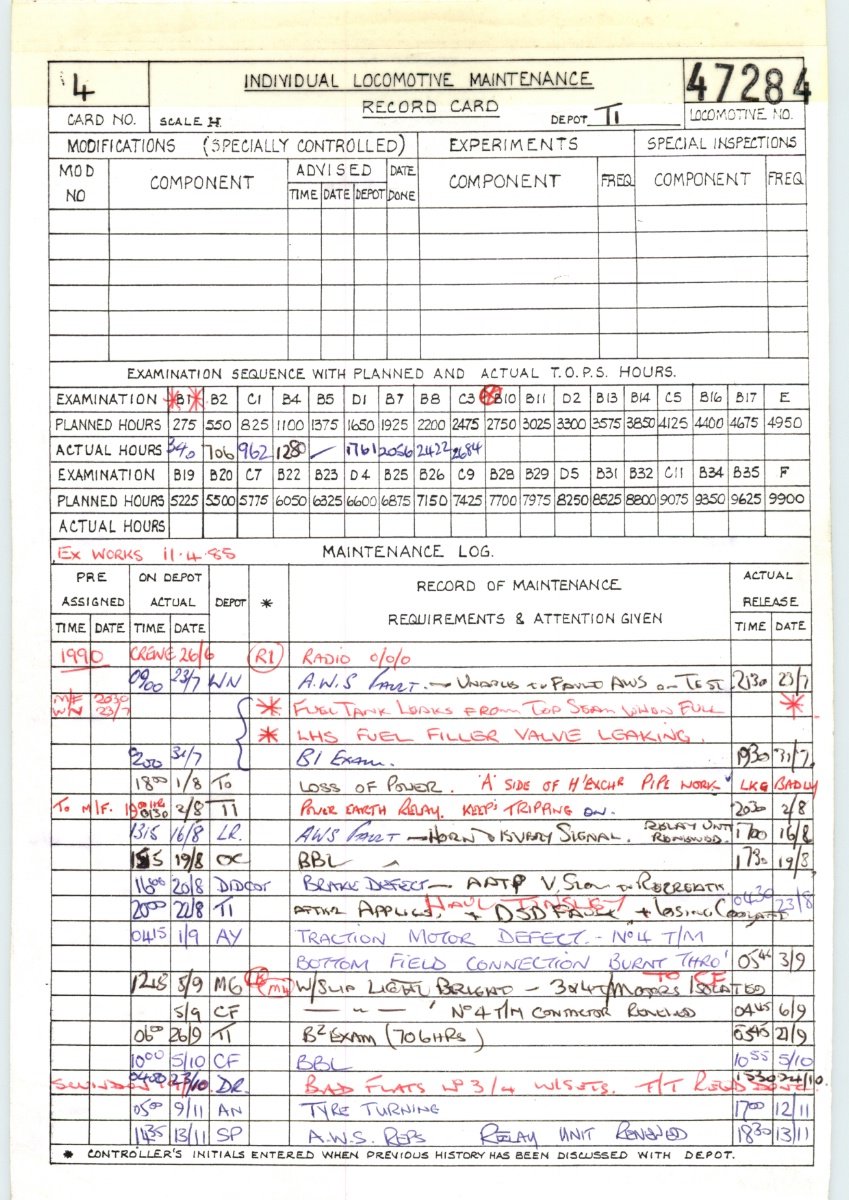 4 INDIVIDUAL LOCOMOTIVE MAINTENANCE 47284
RECORD CARD
CARD NO. SCALE H DEPOT TI LOCOMOTIVE NO.
MODIFICATIONS (SPECIALLY CONTROLLED) EXPERIMENTS SPECIAL INSPECTIONS
MOD NO COMPONENT ADVISED DATE DONE COMPONENT FREQ COMPONENT FREQ
TIME DATE DEPOT
EXAMINATION SEQUENCE WITH PLANNED AND ACTUAL T.O.P.S. HOURS.
EXAMINATION B1 B2 C1 B4 B5 D1 B7 B8 C3 B10 B11 D2 B13 B14 C5 B16 B17 E
PLANNED HOURS 275 550 825 1100 1375 1650 1925 2200 2475 2750 3025 3300 3575 3850 4125 4400 4675 4950
ACTUAL HOURS 340 706 962 1280 1761 2056 2422 2684
EXAMINATION B19 B20 C7 B22 B23 D4 B25 B26 C9 B28 B29 D5 B31 B32 C11 B34 B35 F
PLANNED HOURS 5225 5500 5775 6050 6325 6600 6875 7150 7425 7700 7975 8250 8525 8800 9075 9350 9625 9900
ACTUAL HOURS
EX WORKS 11.4.85 MAINTENANCE LOG.
PRE ASSIGNED ON DEPOT ACTUAL DEPOT * RECORD OF MAINTENANCE REQUIREMENTS & ATTENTION GIVEN ACTUAL RELEASE
TIME DATE TIME DATE TIME DATE
1990 CREWE 26/6 R1 RADIO 0/0/0
0900 23/7 WN A.W.S FAULT. - UNABLE TO FAULT AWS ON TEST 2130 23/7
M/F 2030 WN 23/7 * FUEL TANK LEAKS FROM TOP SEAM WHEN FULL *
* LHS FUEL FILLER VALVE LEAKING.
31/7 B1 EXAM. 1930 31/7
1800 1/8 TO LOSS OF POWER. 'A' SIDE OF H'EXCHR PIPE WORK LKG BADLY
TO M/F. 0130 2/8 TI POWER EARTH RELAY. KEEPS TRIPPING ON. 2030 2/8
1315 16/8 LR. AWS FAULT - HORN SIGNAL. RELAY UNIT RENEWED. 1700 16/8
19/8 OC BBL 1730 19/8
1600 20/8 DIDCOT BRAKE DEFECT - V. SLOW TO RECREATE
2000 22/8 TI AFTER APPLICS. HAUL TINSLEY + DSD FAULT + LOSING COOLANT 0430 23/8
0415 1/9 AY TRACTION MOTOR DEFECT. - No 4 T/M
BOTTOM FIELD CONNECTION BURNT THRO' 0545 3/9
1248 5/9 MG M4 W/SLIP LIGHT BRIGHT - 3 & 4 T/MOTORS ISOLATED TO CF
5/9 CF - " - No 4 T/M CONTACTOR RENEWED 0445 6/9
0600 26/9 TI B2 EXAM (706 HRS) 0545 27/9
1000 5/10 CF BBL 1055 5/10
SWINDON 0400 23/10 DR. BAD FLATS No 3/4 W/SETS. T/T REQD 1530 24/10.
0500 9/11 AN TYRE TURNING 1700 12/11
1435 13/11 SP A.W.S. REPS RELAY UNIT RENEWED 1830 13/11
* CONTROLLER'S INITIALS ENTERED WHEN PREVIOUS HISTORY HAS BEEN DISCUSSED WITH DEPOT.